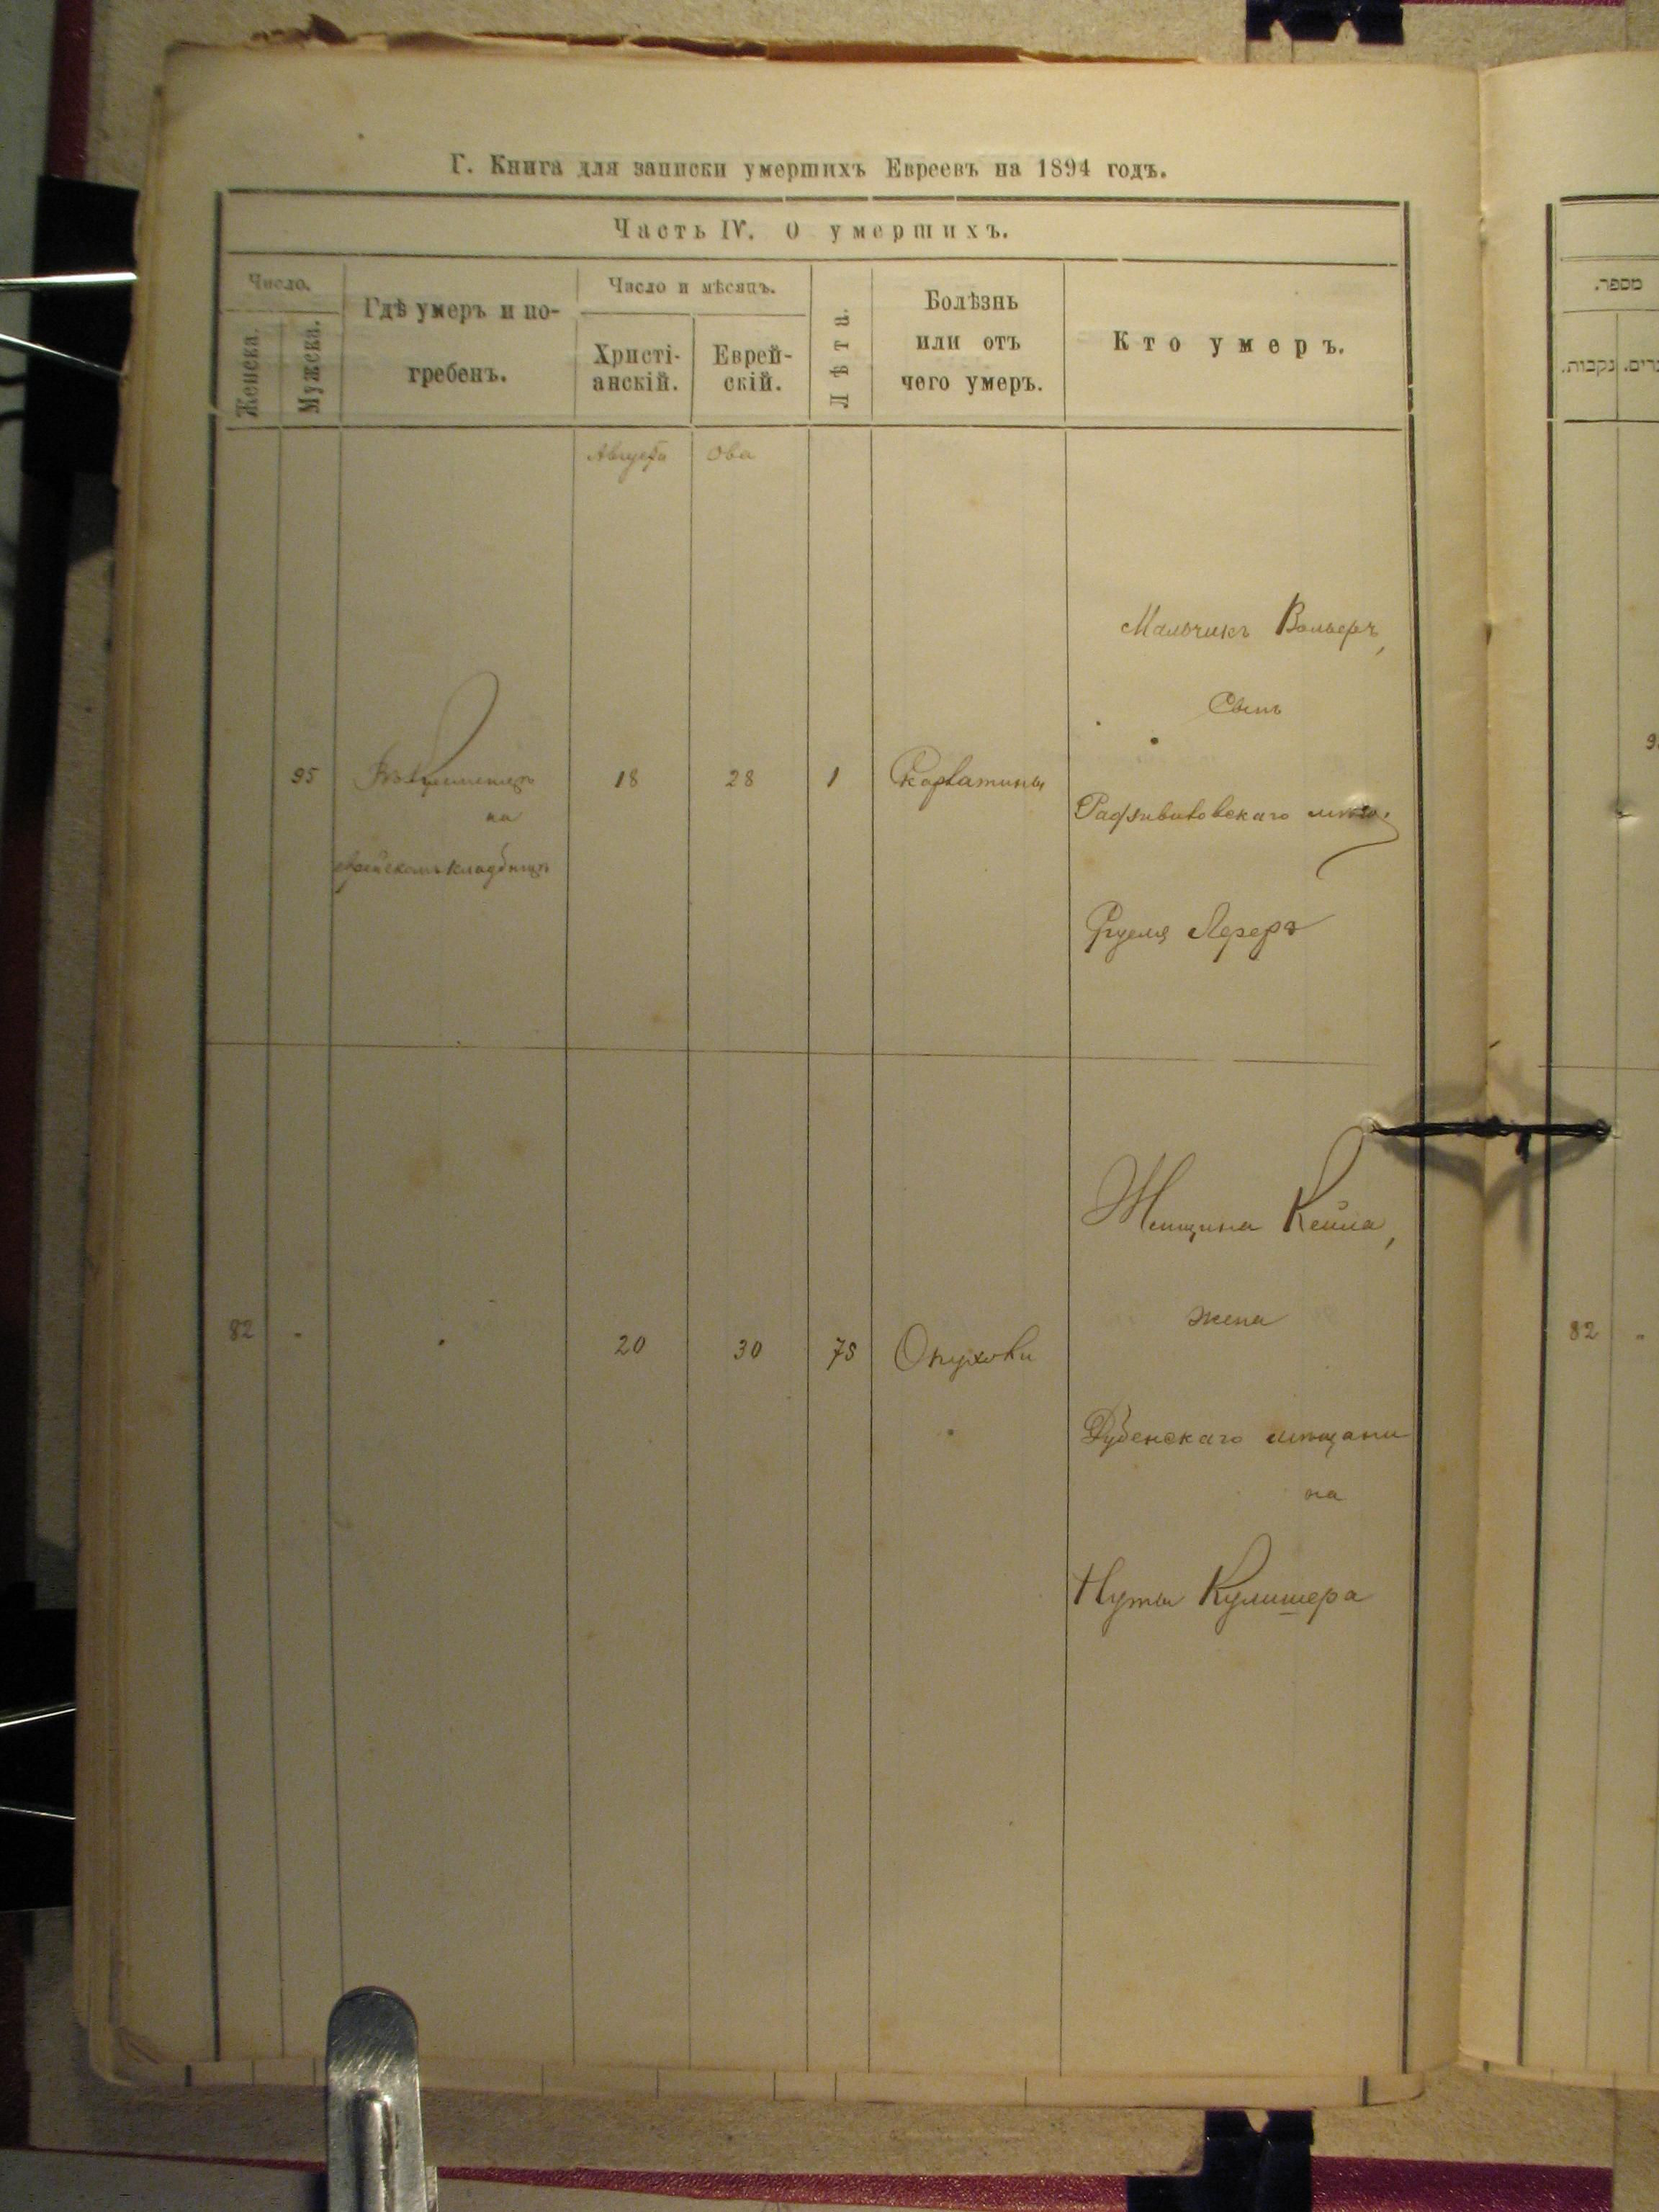 Г. Книга для записки умершихъ Евреевъ на 1894 годъ.
Часть IV. О умершихъ.
Число.
Женска.
Мужска.
Гдѣ умеръ и по-
гребенъ.
Число и мѣсяцъ.
Христі-
анскій.
Еврей-
скій.
Лѣта.
Болѣзнь
или отъ
чего умеръ.
Кто умеръ.
Августа
Ова
95
на
еврейскомъ кладбищѣ
18
28
1
Скарлатины
Мальчикъ Вольфъ,
Сынъ
Радзивиловскаго мѣщ.
Лерера
82
"
"
20
30
75
Опухоли
Женщина Кейла,
жена
Дубенскаго мѣщани
на
Нуты Кулишера
מספר.
נקבות.
82
"